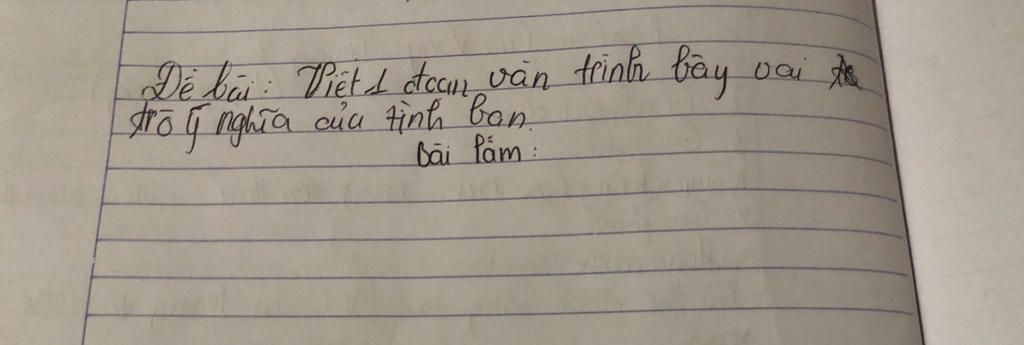 Đề bài: Viết 1 đoạn văn trình bày vai
trò ý nghĩa của tình bạn.
Bài làm: